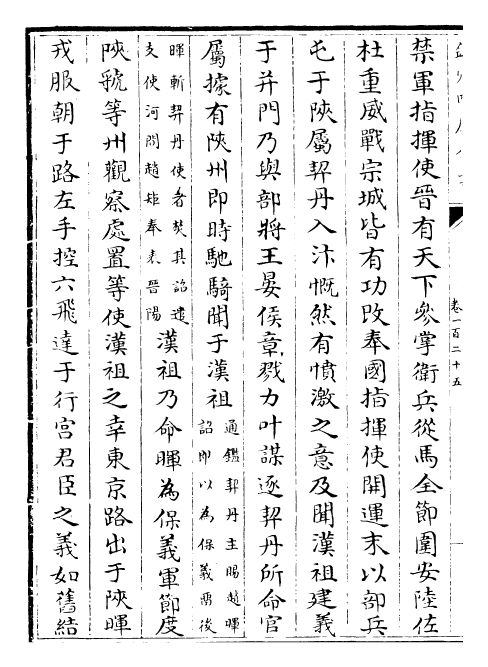 禁軍指揮使晉有天下參掌衛兵從馬全節圍安陸佐
杜重威戰宗城皆有功改奉國指揮使開運末以部兵
屯于陝屬契丹入汴慨然有憤激之意及聞漢祖建義
于并門乃與部將王晏侯章戮力叶謀逐契丹所命官
屬據有陝州即時馳騎聞于漢祖
通鑑契丹主賜趙暉
詔即以為保義留後
暉斬契丹使者焚其詔遣
支使河間趙矩奉表晉陽
漢祖乃命暉為保義軍節度
陝虢等州觀察處置等使漢祖之幸東京路出于陝暉
戎服朝于路左手控六飛達于行宮君臣之義如舊結
卷一百二十五